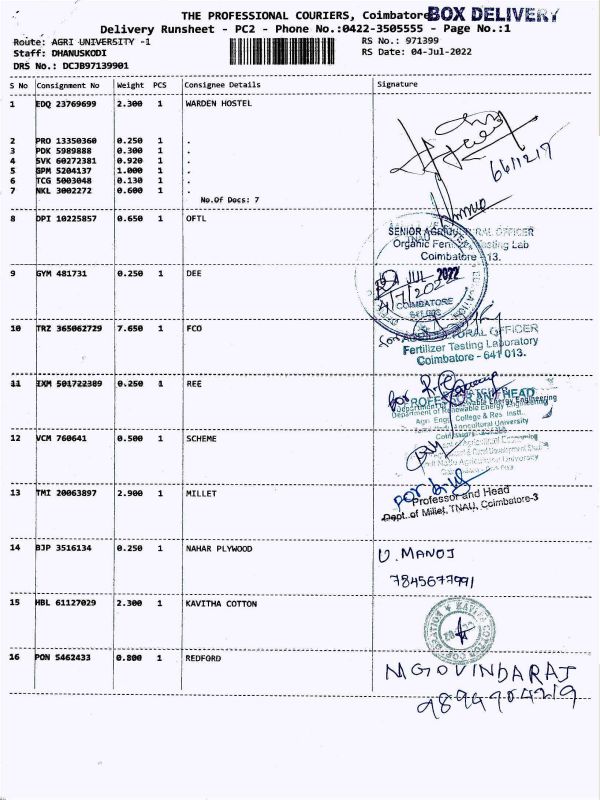 THE PROFESSIONAL COURIERS, Coimbatore BOX DELIVERY
Delivery Runsheet - PC2 - Phone No.:0422-3505555 - Page No.:1
Route: AGRI UNIVERSITY -1 RS No.: 971399
Staff: DHANUSKODI RS Date: 04-Jul-2022
DRS No.: DCJB97139901
S No Consignment No Weight PCS Consignee Details Signature
1 EDQ 23769699 2.300 1 WARDEN HOSTEL
2 PRO 13350360 0.250 1 .
3 PDK 5989888 0.300 1 .
4 SVK 60272381 0.920 1 .
5 GPM 5204137 1.000 1 .
6 TCG 5003048 0.130 1 .
7 NKL 3002272 0.600 1 .
No.Of Docs: 7
8 DPI 10225857 0.650 1 OFTL
SENIOR AGRICULTURAL OFFICER
Organic Fertilizer Testing Lab
Coimbatore - 13.
9 GYM 481731 0.250 1 DEE
JUL 2022
4/7/2022
COIMBATORE
10 TRZ 365062729 7.650 1 FCO
AGRICULTURAL OFFICER
Fertilizer Testing Laboratory
Coimbatore - 641 013.
11 IXM 501722389 0.250 1 REE
for
PROFESSOR AND HEAD
Department of Renewable Energy Engineering
Agri. Engg. College & Res. Instt.
Agricultural University
12 VCM 760641 0.500 1 SCHEME
13 TMI 20063897 2.900 1 MILLET
for
Professor and Head
Dept. of Millet, TNAU, Coimbatore-3
14 BJP 3516134 0.250 1 NAHAR PLYWOOD
U. MANOJ
7845677991
15 HBL 61127029 2.300 1 KAVITHA COTTON
16 PON 5462433 0.800 1 REDFORD
M GOVINDARAJ